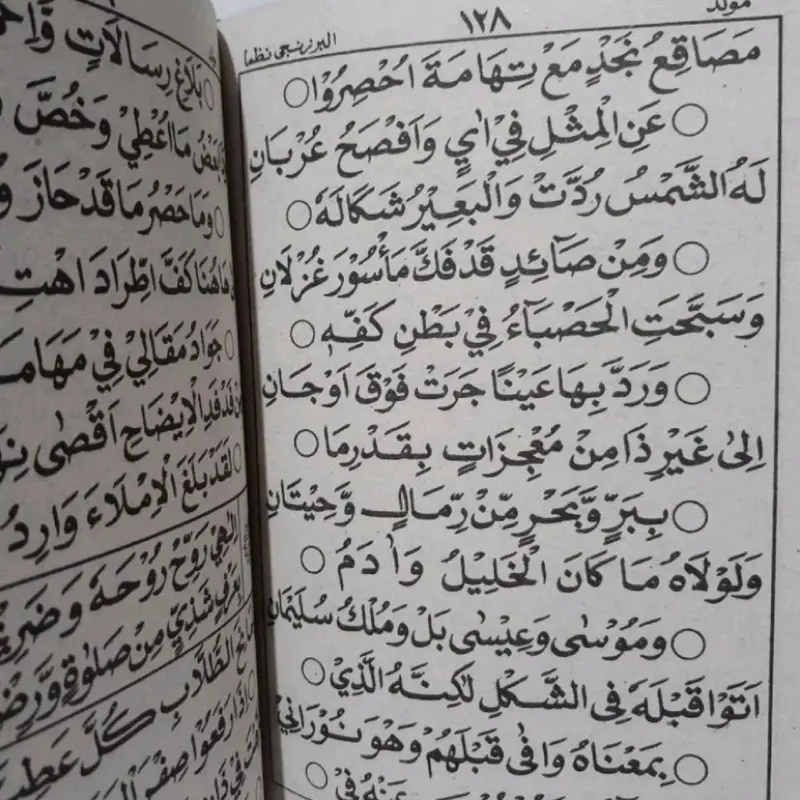 مولد
١٢٨
البرزنجي نظما
مَصَاقِعُ نَجْدٍ مَعْ تِهَامَةَ اُحْصِرُوْا
عَنِ الْمِثْلِ فِيْ اٰيٍ وَاَفْصَحُ عُرْبَانِ
لَهُ الشَّمْسُ رُدَّتْ وَالْبَعِيْرُ شَكَالَهٗ
وَمِنْ صَآئِدٍ قَدْ فَكَّ مَأْسُوْرَ غُزْلَانِ
وَسَبَّحَتِ الْحَصْبَآءُ فِيْ بَطْنِ كَفِّهٖ
وَرَدَّ بِهَا عَيْنًا جَرَتْ فَوْقَ اَوْجَانِ
اِلىٰ غَيْرِ ذَا مِنْ مُعْجِزَاتٍ بِقَدْرِمَا
بِبَرٍّ وَّبَحْرٍ مِّنْ رِّمَالٍ وَّحِيْتَانِ
وَلَوْلَاهُ مَا كَانَ الْخَلِيْلُ وَاٰدَمُ
وَمُوْسٰى وَعِيْسٰى بَلْ وَمُلْكُ سُلَيْمَانِ
اَتَوْا قَبْلَهٗ فِى الشَّكْلِ لٰكِنَّهُ الَّذِيْ
بِمَعْنَاهُ وَافٰى قَبْلَهُمْ وَهْوَ نُوْرَانِيْ
عَنْهُ فِيْ
بَلَاغِ رِسَالَاتٍ
مَا اُعْطِيْ وَخُصَّ
وَمَا حَصْرُ مَا قَدْ حَازَ
هُنَا كَفَّ اطِّرَادَ
جَوَادُ مَقَالِيْ فِيْ
فَدْفَدِ الْاِيْضَاحِ اَقْصٰى
لَقَدْ بَلَغَ الْاِمْلَاءَ وَارِدُ
اِلٰهِيْ رَوِّحْ رُوْحَهٗ وَضَرِيْحَهٗ
بِعَرْفٍ شَذِيٍّ مِنْ صَلٰوةٍ وَّرِضْ
الطُّلَّابِ كُلَّ
اِذَا رَفَعُوْا صِفْرَ